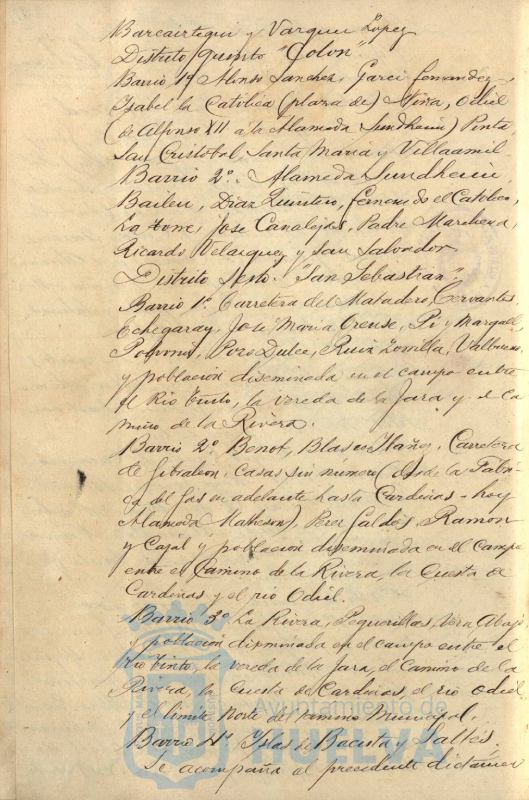 Barcaiztegui y Vazquez Lopez
Distrito quinto "Colon".
Barrio 1º Alonso Sanchez, Garci Fernandez,
Isabel la Católica (plaza de) Niña, Odiel
(de Alfonso XII a la Alameda Sundheim) Pinta,
San Cristobal, Santa Maria y Villaamil.
Barrio 2º. Alameda Sundheim
Bailen, Diaz Quintero, Fernando el Catolico,
La Torre, Jose Canalejas, Padre Marchena,
Ricardo Velazquez y San Salvador
Distrito Sexto. "San Sebastian".
Barrio 1º Carretera del Matadero, Cervantes,
Echegaray, Jose Maria Orense, Pi y Margall,
Polvorin, Pozo Dulce, Ruiz Zorrilla,
y población diseminada en el campo entre
el Rio Tinto, la vereda de la Jara y el Ca
mino de la Rivera.
Barrio 2º Benot, Blasco Ibañez, Carretera
de Gibraleon, Casas sin numero (desde la Fabri
ca del Gas en adelante hasta Cardeñas - hoy
Alameda Matheson), Perez Galdós, Ramon
y Cajál y población diseminada en el campo
entre el Camino de la Rivera, la Cuesta de
Cardeñas y el rio Odiel.
Barrio 3º La Rivera, Peguerillas, Vera Abajo
y población diseminada en el campo entre el
rio Tinto, la vereda de la Jara, el Camino de la
Rivera, la Cuesta de Cardeñas, el rio Odiel
y el limite Norte del termino Municipal.
Barrio 4º. Islas de Bacuta y Saltés.
Se acompaña al precedente dictamen
Ayuntamiento de
HUELVA